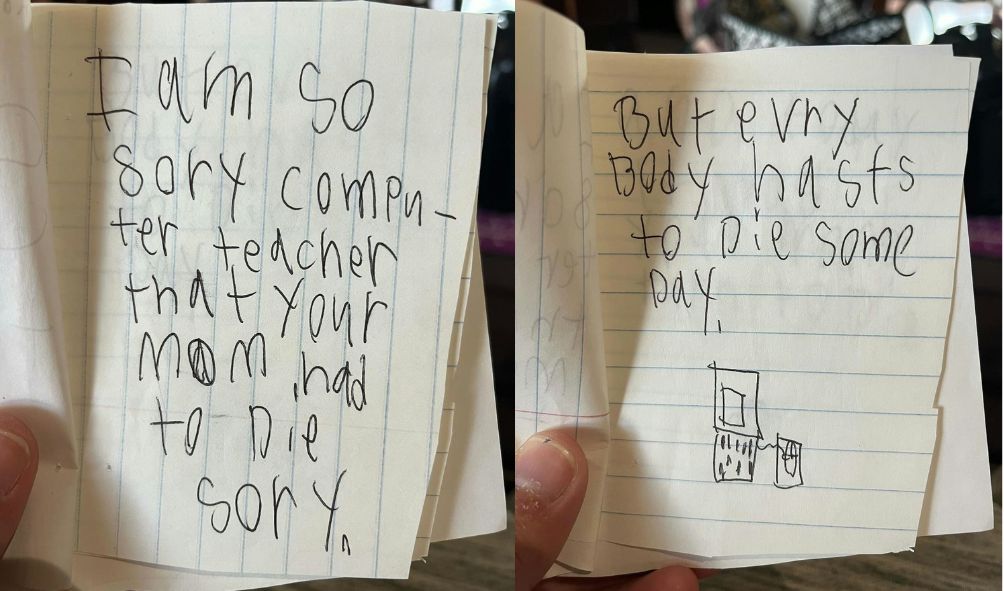 I am so
sory compu-
ter teacher
that your
mom had
to Die
sory.
But evry
BODy hasts
to Die some
Day.